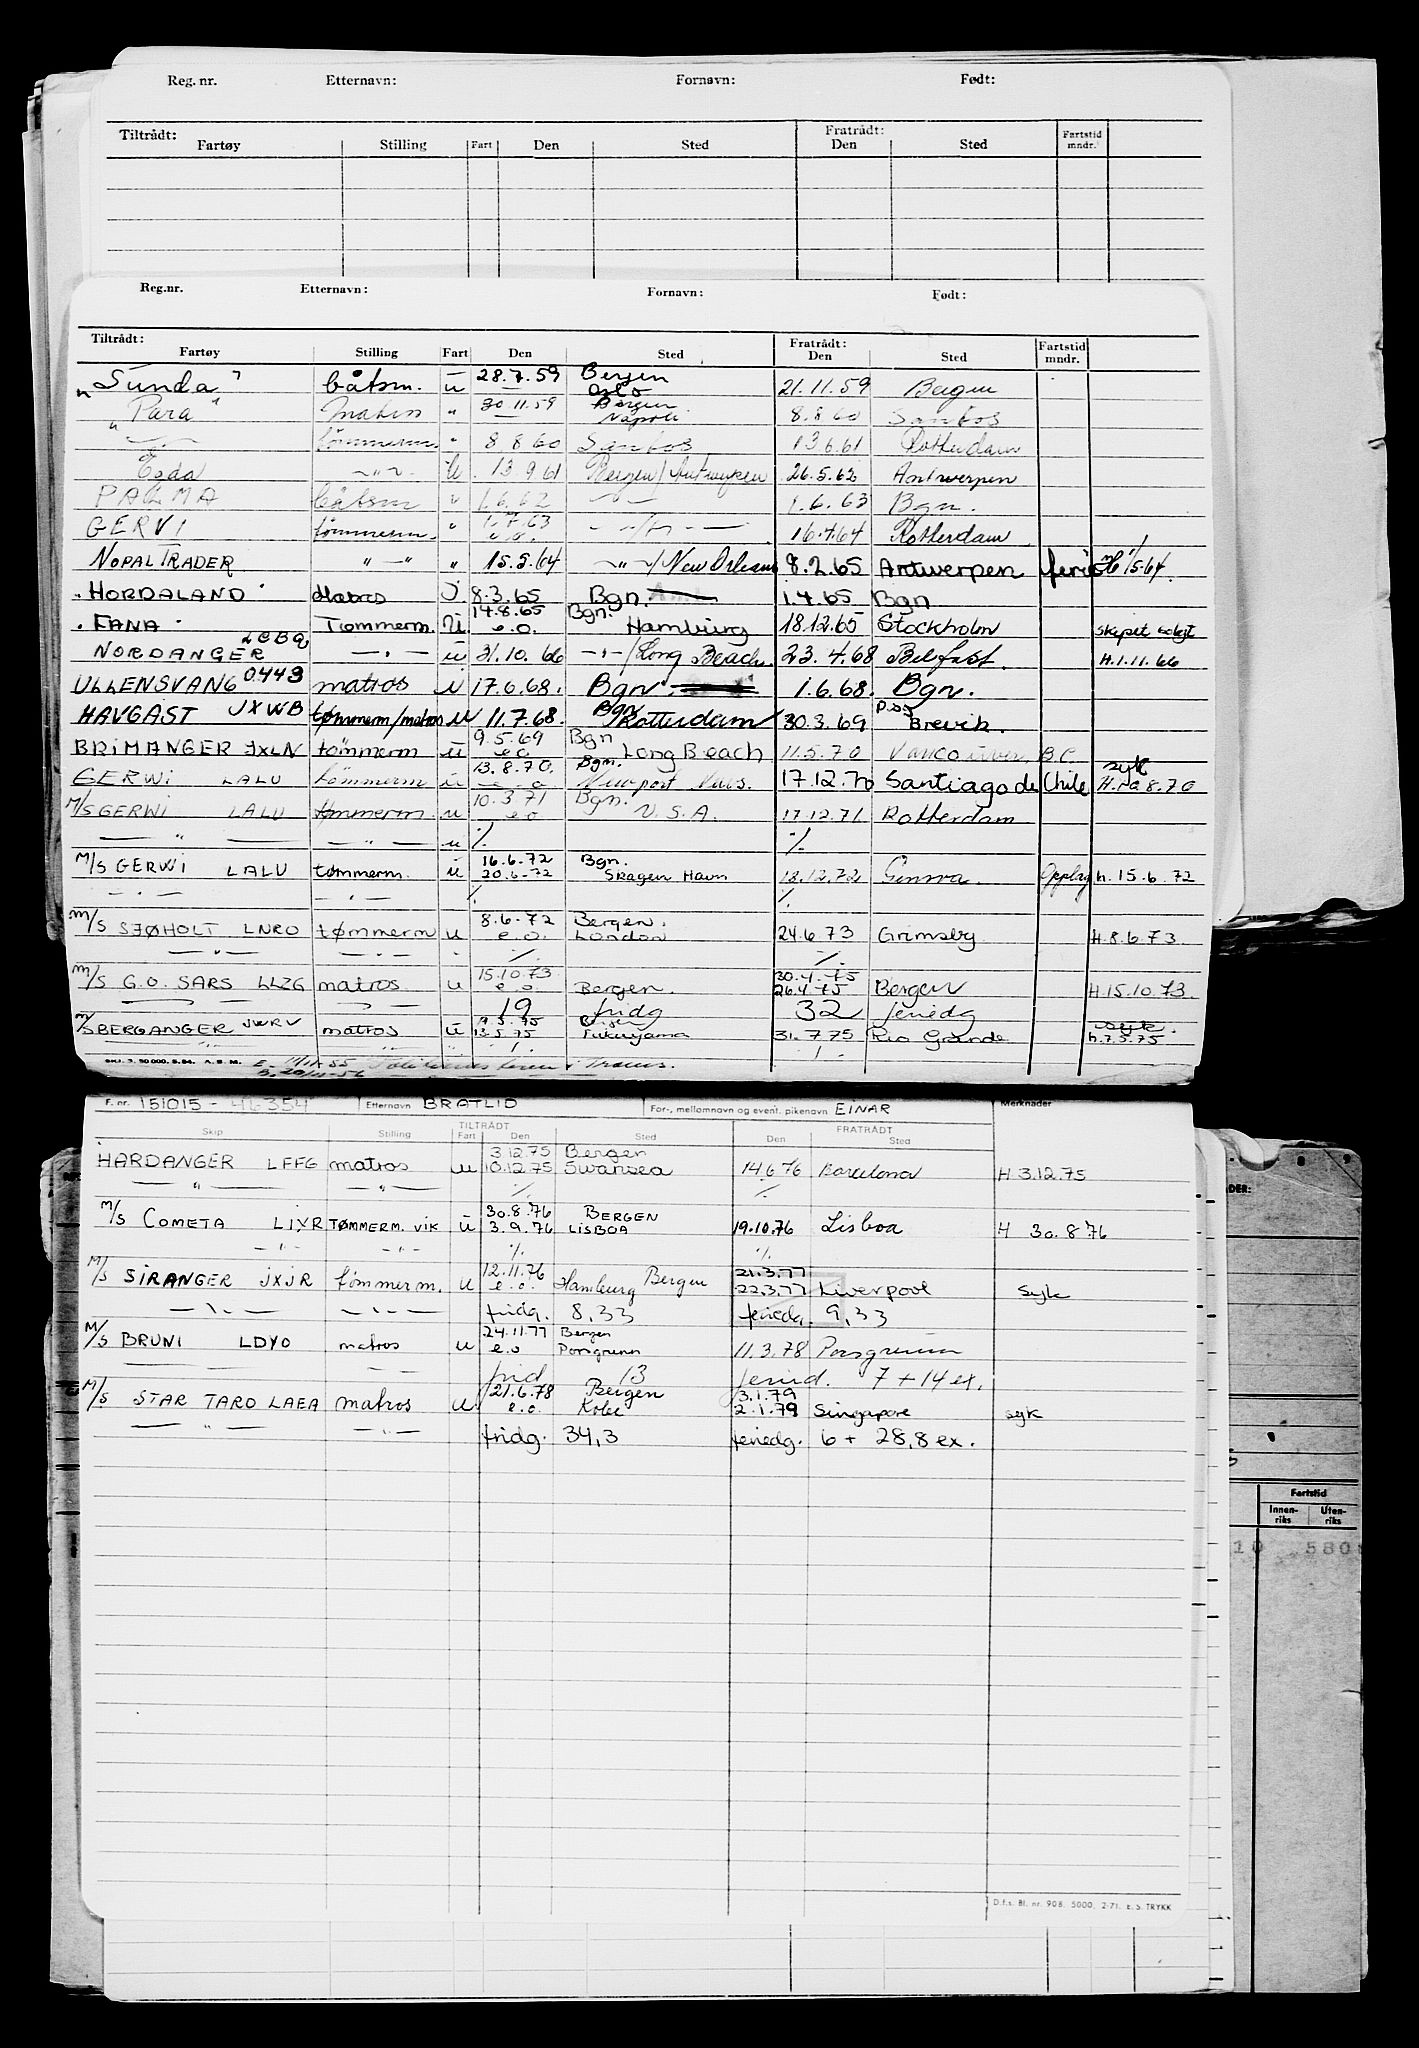 Reg. nr. Etternavn: Fornavn: Født:
Tiltrådt: Fratrådt:
Fartøy Stilling Fart Den Sted Den Sted Fartstid mndr.
Reg.nr. Etternavn: Fornavn: Født:
Tiltrådt: Fratrådt:
Fartøy Stilling Fart Den Sted Den Sted Fartstid mndr.
"Sunda" båtsm. u 28.7.59 Bergen Oslo 21.11.59 Bergen
"Para" matros " 30.11.59 Bergen Napoli 8.8.60 Santos
— " — tömmerm. " 8.8.60 Santos 13.6.61 Rotterdam
Togda — " — U. 13.9.61 Bergen/Antwerpen 26.5.62 Antwerpen
PALMA båtsm " 1.6.62 — " — 1.6.63 Bgn.
GERVI tömmerm. " 1.7.63 e.o. — " — 16.4.64 Rotterdam
NOPAL TRADER " — " " 15.5.64 — " —/New Orleans 8.2.65 Antwerpen ferie 1/5-64.
"HORDALAND" Matros J. 8.3.65 Bgn. 1.4.65 Bgn
"FANA" Tømmerm. U. 14.8.65 e.o. Bgn. Hamburg 18.12.65 Stockholm skipet solgt
NORDANGER LCBQ — " — u 31.10.66 — " —/Long Beach 23.4.68 Belfast. H.1.11.66
ULLENSVANG 0443 matros u 17.6.68. Bgn 1.6.68. Bgn.
HAVGAST JXWB tømmerm/matros u 11.7.68. Bgn Rotterdam 30.3.69 p.s.s Brevik.
BRIMANGER JXLN tömmerm u 9.5.69 e.o Bgn Long Beach 11.5.70 Vancouver, B.C.
GERWI LALU tömmerm u 13.8.70. e.o Bgn. Newport News. 17.12.70 Santiago de Chile syk H. 8.70
M/S GERWI LALU tømmerm. u 10.3.71 e.o Bgn. U.S.A. 17.12.71 Rotterdam
— " — — " — u ٪ ٪
M/S GERWI LALU tømmerm. u 16.6.72 20.6-72 Bgn. Skagen Havn 18.12.72 Genova. Opplag h.15.6.72
— " — — " — ٪ ٪
M/S SJØHOLT LNRO tømmerm u 8.6.72 e.o. Bergen. London 24.6.73 Grimsby H.8.6.73.
— " — — " — ٪ ٪
M/S G.O. SARS LLZG matros u 15.10.73 e.o. Bergen. 30.4.75 26.4.75 Bergen H.15.10.73.
— " — — " — 19 fridg 32 feriedg
M/S BERGANGER JWRV matros u 19.5.75 13.5.75 Bergen Fukuyama 31.7.75 Rio Grande syk. h.7.5.75
" " ٪ ٪
SKJ. 3. 50 000. 5.54. A. S. M. E. 11/11-55 i Troms.
F. nr. 151015 - 42354 Etternavn BRATLID For-, mellomnavn og event. pikenavn EINAR Merknader
TILTRÅDT FRATRÅDT
Skip Stilling Fart Den Sted Den Sted
HARDANGER LFFG matros u 3.12.75 10.12.75 Bergen Swansea 14.6.76 Barcelona H 3.12.75
— " — — " — ٪ ٪
M/S COMETA LIXR TØMMERM. VIK u 30.8.76 3.9.76 BERGEN LISBOA 19.10.76 Lisboa H 30.8.76
— " — — " — ٪ ٪
M/S SIRANGER JXJR tømmerm. u 12.11.76 e.o. Hamburg Bergen 21.3.77 22.3.77 Liverpool syk
— " — — " — fridg. 8,33 feriedg. 9,33
M/S BRUNI LDYO matros u 24.11.77 e.o Bergen Porsgrunn 11.3.78 Porsgrunn
— — frid 13 feried. 7 + 14 ex.
M/S STAR TARO LAEA matros u 21.6.78 e.o. Bergen Kobe 3.1.79 2.1.79 Singapore syk
— " — — " — fridg. 34,3 feriedg. 6 + 28,8 ex.
D.f.s. Bl. nr. 908. 5000. 2-71. E. S. TRYKK
DER:
Fartstid
Innenriks Utenriks
10 580